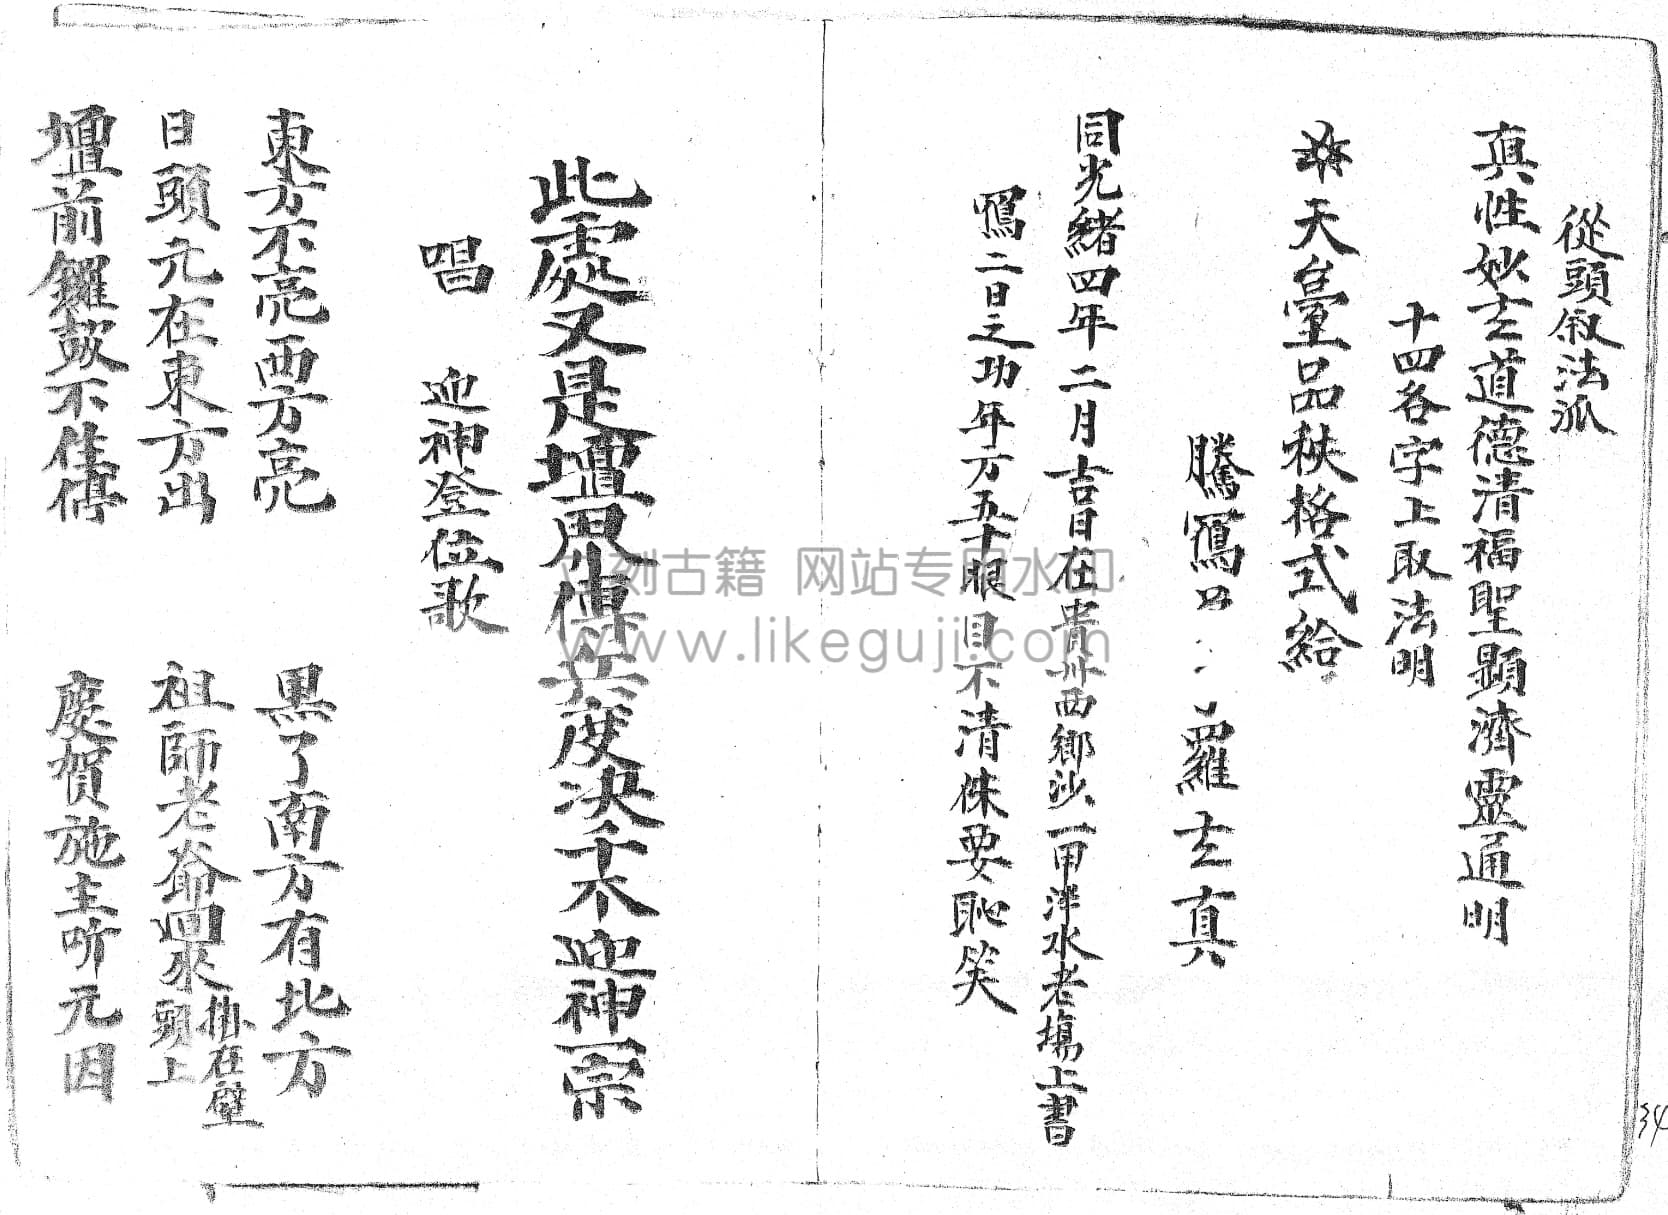 從頭叙法派
真性妙玄道德清福聖顯濟靈通明
十四各字上取法明
天臺品秩格式給
騰寫
羅玄真
同光緒四年二月吉日在貴州西鄉沙一甲洋水老塲上書
寫二日之功年方五十眼目不清侏要恥笑
此處又是壇界傳兵度决千不迎神一宗
唱 迎神登位歌
東方不亮西方亮 黑了南方有北方
日頭元在東方出 祖師老爺迴來掛在壁頭上
壇前鑼鼓不住停 慶賀施主听元因
34
立刻古籍 网站专用水印
www.likeguji.com